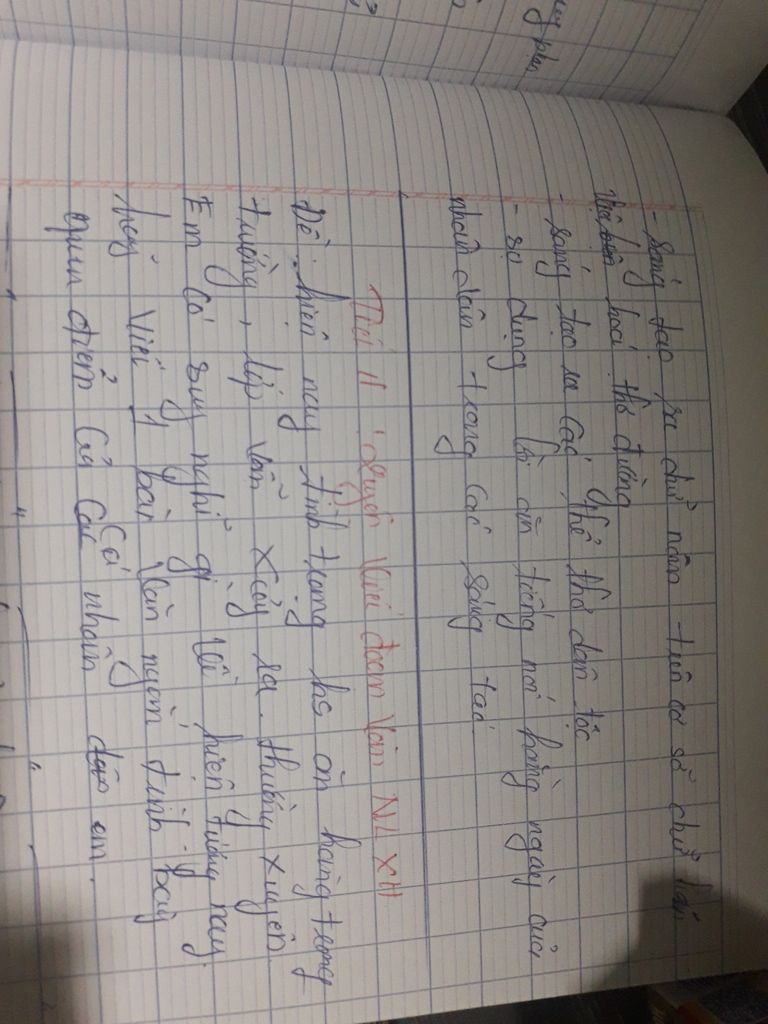 - sáng tạo ra chữ nôm trên cơ sở chữ hán
hoá thơ đường
- sáng tạo ra các thể thơ dân tộc
- sử dụng lời ăn tiếng nói hằng ngày của
nhân dân trong các sáng tác
Tiết 11 Luyện viết đoạn văn NLXH
Đề: hiện nay tình trạng hs ăn hàng trong
trường, lớp vẫn xảy ra thường xuyên.
Em có suy nghĩ gì về hiện tượng này.
hãy viết 1 bài văn ngắn trình bày
quan điểm của cá nhân em.